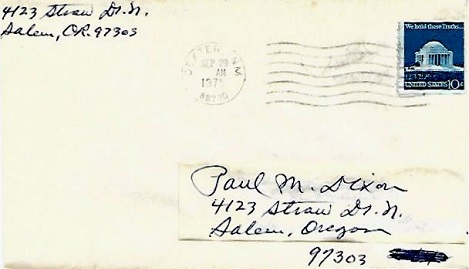 4123 Straw Dr. N.
Salem, OR. 97303
SEP 29
AM
1975
We hold these Truths...
UNITED STATES 10c
Paul M. Dixon
4123 Straw Dr. N.
Salem, Oregon
97303